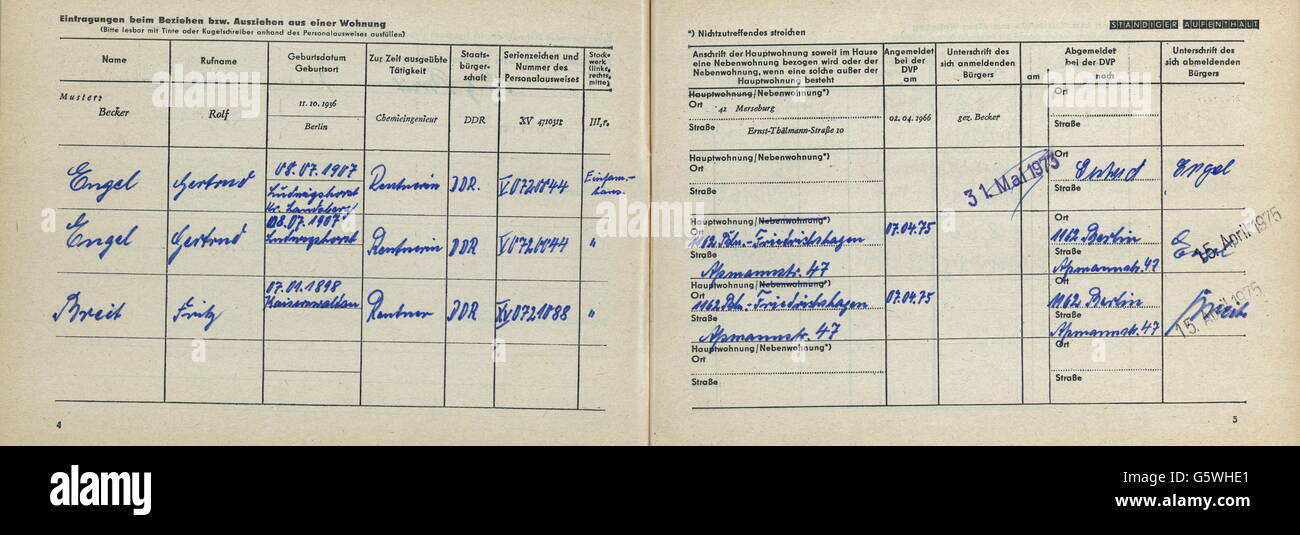 Eintragungen beim Beziehen bzw. Ausziehen aus einer Wohnung
(Bitte lesbar mit Tinte oder Kugelschreiber anhand des Personalausweises ausfüllen)
Name
Rufname
Geburtsdatum
Geburtsort
Zur Zeit ausgeübte
Tätigkeit
Staats-
bürger-
schaft
Serienzeichen und
Nummer des
Personalausweises
Stock-
werk
(links,
rechts,
mitte)
Muster:
Becker
Rolf
11. 10. 1936
Berlin
Chemieingenieur
DDR
XV 4710312
III,r.
Engel
Gertrud
08.07.1907
Ludwigshorst
Kr. Landsberg/
Rentnerin
DDR.
V0720044
Einfam.-
haus.
Engel
Gertrud
08.07.1907
Ludwigshorst
Rentnerin
DDR
V0720044
"
Breit
Fritz
07.01.1898
Kaiserswaldau
Rentner
DDR
XV0721088
"
4
STÄNDIGER AUFENTHALT
*) Nichtzutreffendes streichen
Anschrift der Hauptwohnung soweit im Hause
eine Nebenwohnung bezogen wird oder der
Nebenwohnung, wenn eine solche außer der
Hauptwohnung besteht
Angemeldet
bei der
DVP
am
Unterschrift des
sich anmeldenden
Bürgers
am
Abgemeldet
bei der DVP
am
nach
Unterschrift des
sich abmeldenden
Bürgers
Hauptwohnung/Nebenwohnung*)
Ort
42 Merseburg
Straße
Ernst-Thälmann-Straße 10
02. 04. 1966
gez. Becker
Ort
Straße
Hauptwohnung/Nebenwohnung*)
Ort
Straße
31. Mai 1973
Ort
Straße
Engel
Hauptwohnung/Nebenwohnung*)
Ort
1162 Bln.-Friedrichshagen
Straße
Aßmannstr. 47
07.04.75
Ort
1162 Berlin
Straße
Aßmannstr. 47
Engel
15. April 1975
Hauptwohnung/Nebenwohnung*)
Ort
1162 Bln.-Friedrichshagen
Straße
Aßmannstr. 47
07.04.75
Ort
1162 Berlin
Straße
Aßmannstr. 47
Breit
15. April 1975
Hauptwohnung/Nebenwohnung*)
Ort
Straße
Ort
Straße
5
alamy
alamy
Image ID: G5WHE1
www.alamy.com